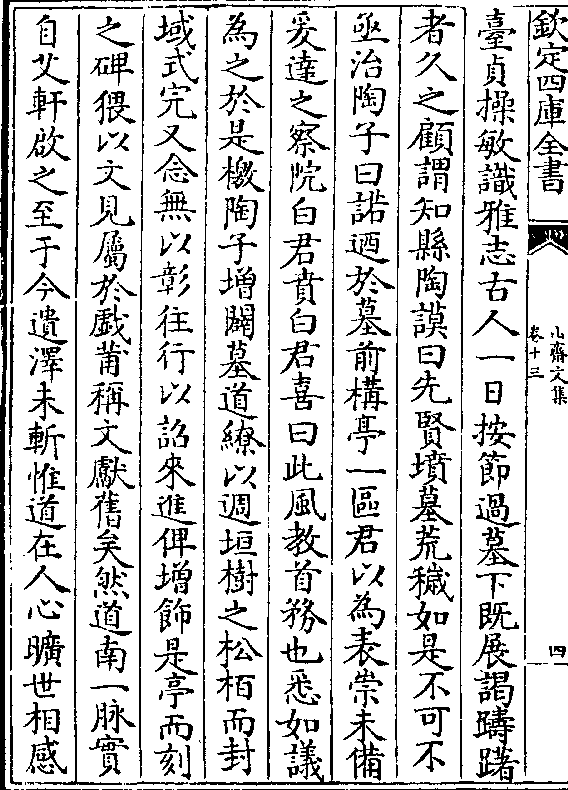 欽定四庫全書
小齋文集
卷十三
四
臺貞操敏識雅志古人一日按節過墓下既展謁躊躇
者久之顧謂知縣陶謨曰先賢墳墓荒穢如是不可不
亟治陶子曰諾迺於墓前構亭一區君以為表崇未備
爰達之察院白君賁白君喜曰此風教首務也悉如議
為之於是檄陶子増闢墓道繚以週垣樹之松栢而封
域式完又念無以彰往行以詔來進俾增飾是亭而刻
之碑猥以文見屬於戲莆稱文獻舊矣然道南一脉實
自艾軒啟之至于今遺澤未斬惟道在人心曠世相感